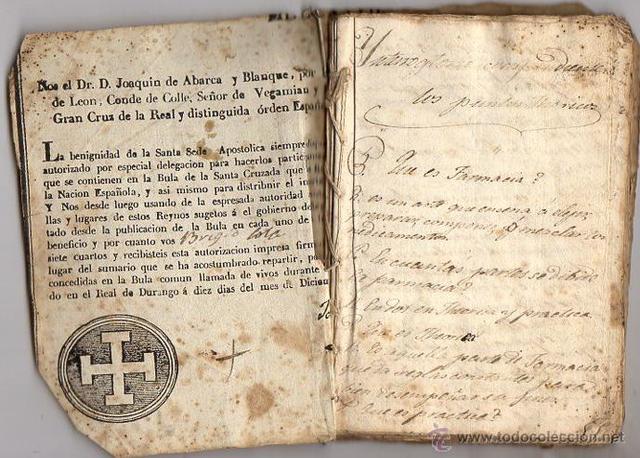 Nos el Dr. D. Joaquin de Abarca y Blanque, por
de Leon, Conde de Colle, Señor de Vegamian y
Gran Cruz de la Real y distinguida órden Españ
La benignidad de la Santa Sede Apostólica siempre
autorizado por especial delegacion para hacerlos particip
que se contienen en la Bula de la Santa Cruzada que
la Nacion Española, y asi mismo para distribnir el in
Y Nos desde luego usando de la espresada autoridad
llas y lugares de estos Reynos sugetos á el gobierno del
tado desde la publicacion de la Bula en cada uno de
beneficio y por cuanto vos
siete cuartos y recibisteis esta autorizacion impresa firm
lugar del sumario que se ha acostumbrado repartir, po
concedidas en la Bula comun llamada de vivos durante
do en el Real de Durango á diez dias del mes de Diciem
los puntos
P. Que es Farmacia?
R. es un arte que enseña á elegir
preparar, componer, y mezclar
medicamentos.
P. En cuantas partes se divide
la farmacia?
R. En dos en Theorica y practica.
Que es Theorica
R. Es aquella parte de Farmacia
Que es practica?
www.todocoleccion.net